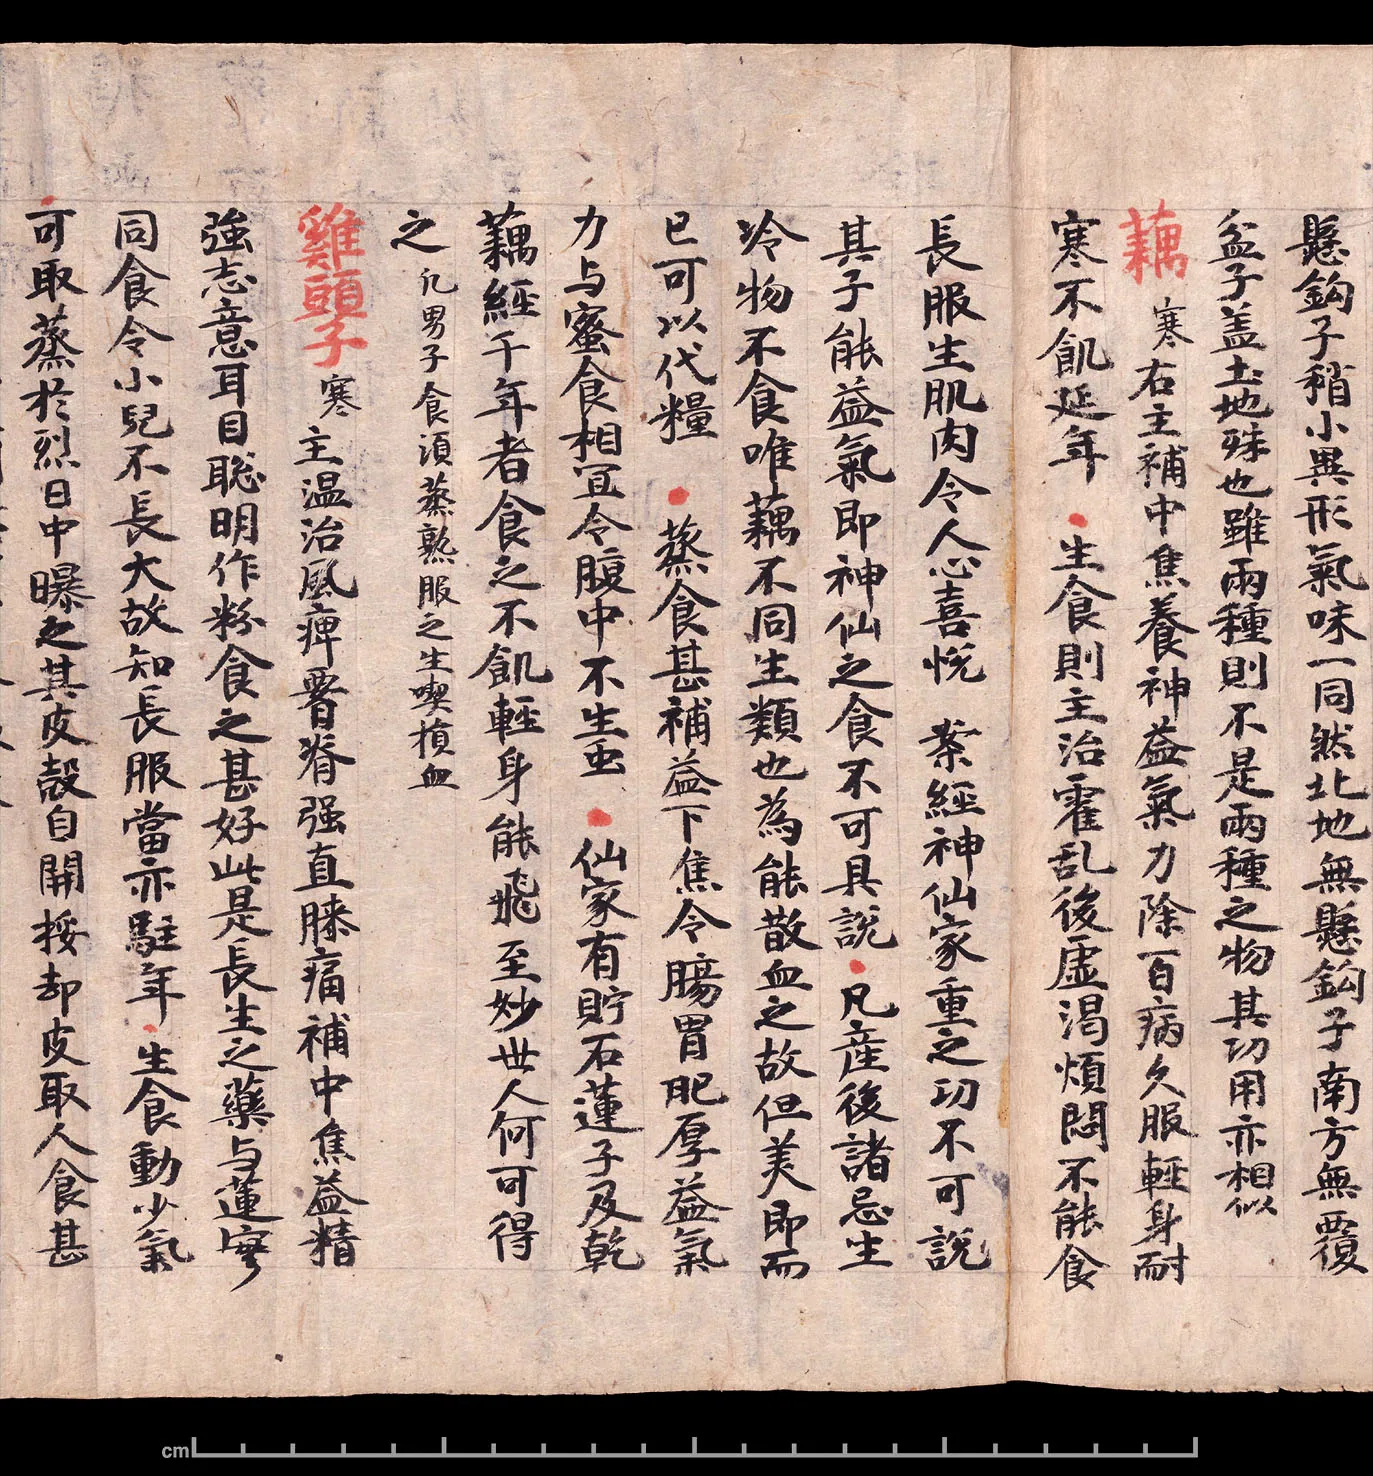 懸鈎子稍小異形氣味一同然北地無懸鈎子南方無覆
盆子盖土地殊也雖兩種則不是兩種之物其功用亦相似
藕 寒 右主補中焦養神益氣力除百病久服輕身耐
寒不飢延年 生食則主治霍乱後虛渴煩悶不能食
長服生肌肉令人心喜悅 案經神仙家重之功不可說
其子能益氣即神仙之食不可具說 凡産後諸忌生
冷物不食唯藕不同生類也為能散血之故但美即而
已可以代糧 蒸食甚補益下焦令腸胃肥厚益氣
力与蜜食相宜令腹中不生虫 仙家有貯石蓮子及乾
藕經千年者食之不飢輕身能飛至妙世人何可得
之 凡男子食須蒸熟服之生喫損血
雞頭子 寒 主温治風痺署脊强直膝痛補中焦益精
強志意耳目聡明作粉食之甚好此是長生之藥与蓮實
同食令小兒不長大故知長服當亦駐年 生食動少氣
可取蒸於烈日中曝之其皮殼自開挼却皮取人食甚